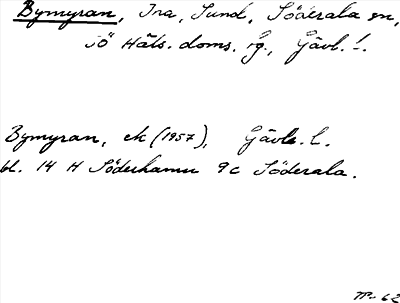 Bymyran, Ina, Sund, Söderala sn,
sö Häls. doms. rg., Gävl. l.
Bymyran, ek (1957), Gävle. l.
bl. 14 H Söderhamn 9c Söderala.
62